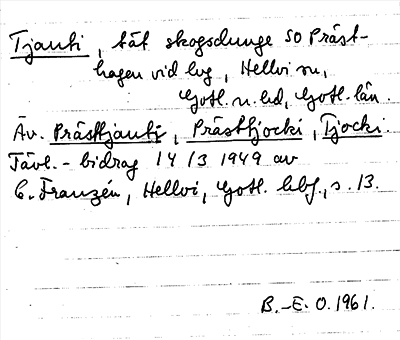 Tjauti, tät skogsdunge SO Präst-
hagen vid lvg, Hellvi sn,
Gotl. n. hd, Gotl. län.
Äv. Prästtjauti, Prästtjocki, Tjocki.
Tävl.-bidrag 14/3 1949 av
C. Franzén, Hellvi, Gotl. hbf., s. 13.
B.-E. O. 1961.